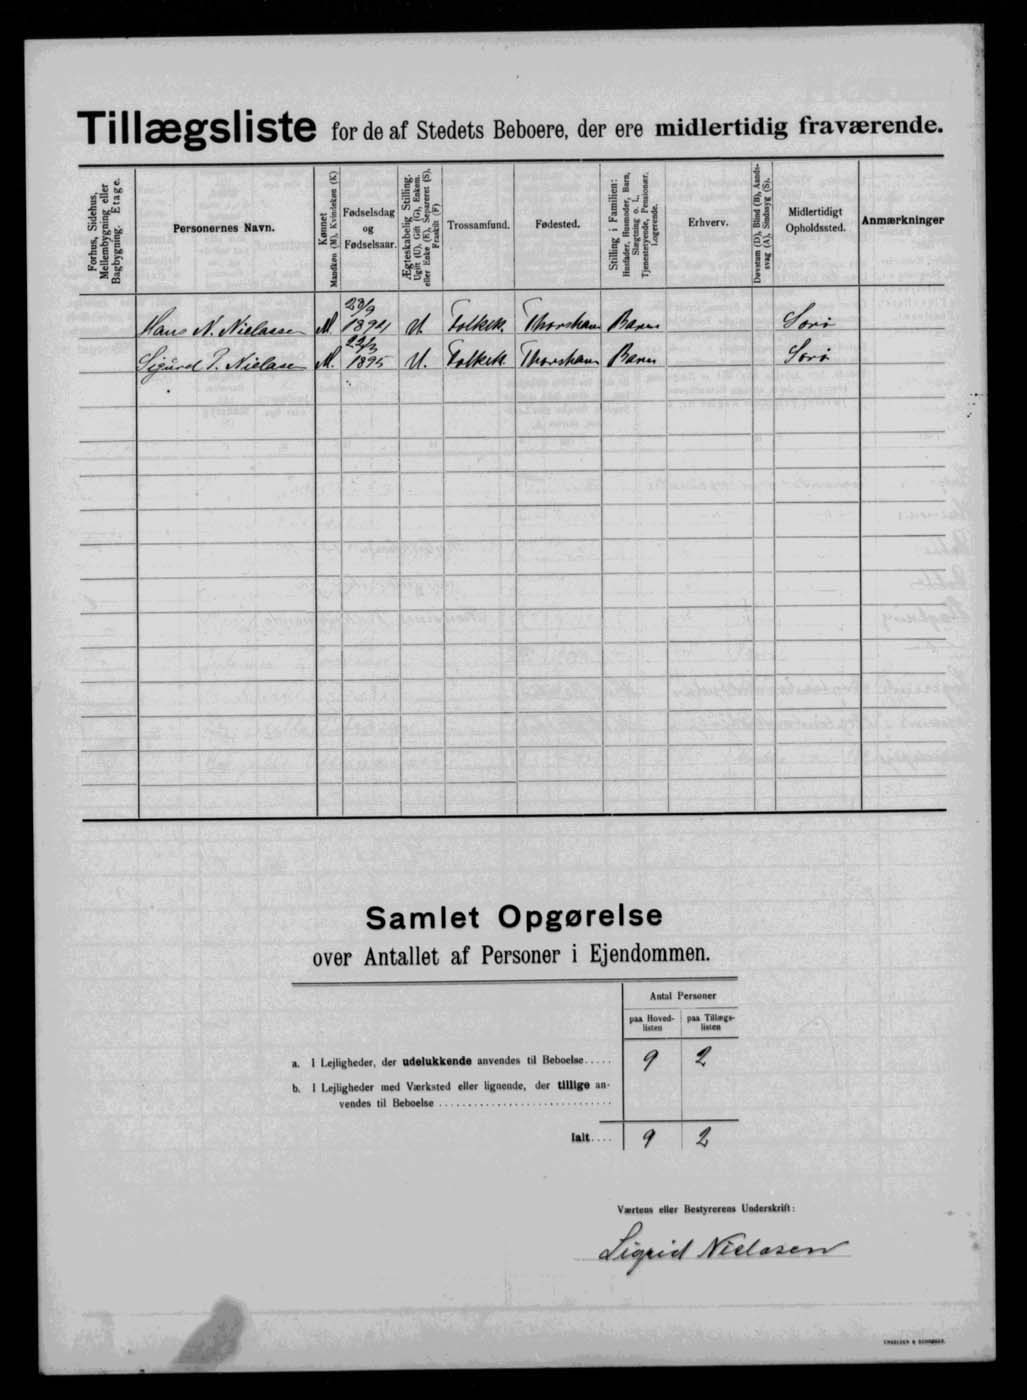 Tillægsliste for de af Stedets Beboere, der ere midlertidig fraværende.
Forhus, Sidehus, Mellembygning eller Bagbygning. Etage.
Personernes Navn.
Kønnet Mandkøn (M), Kvindekøn (K)
Fødselsdag og Fødselsaar.
Ægteskabelig Stilling. Ugift (U), Gift (G), Enkem. eller Enke (E), Separeret (S), Fraskilt (F)
Trossamfund.
Fødested.
Stilling i Familien: Husfader, Husmoder, Barn, Slægtning o. l., Tjenestetyende, Pensionær, Logerende.
Erhverv.
Døvstum (D), Blind (B), Aandssvag (A), Sindssyg (S).
Midlertidigt Opholdssted.
Anmærkninger
Hans N. Nielsen M. 23/9 1894 U. Folkek. Thorshavn Barn Sorø
Sigurd P. Nielsen M. 22/3 1895 U. Folkek. Thorshavn Barn Sorø
Samlet Opgørelse
over Antallet af Personer i Ejendommen.
Antal Personer
paa Hoved-listen paa Tillægs-listen
a. I Lejligheder, der udelukkende anvendes til Beboelse..... 9 2
b. I Lejligheder med Værksted eller lignende, der tillige an-
vendes til Beboelse
Ialt.... 9 2
Værtens eller Bestyrerens Underskrift:
Sigrid Nielsen